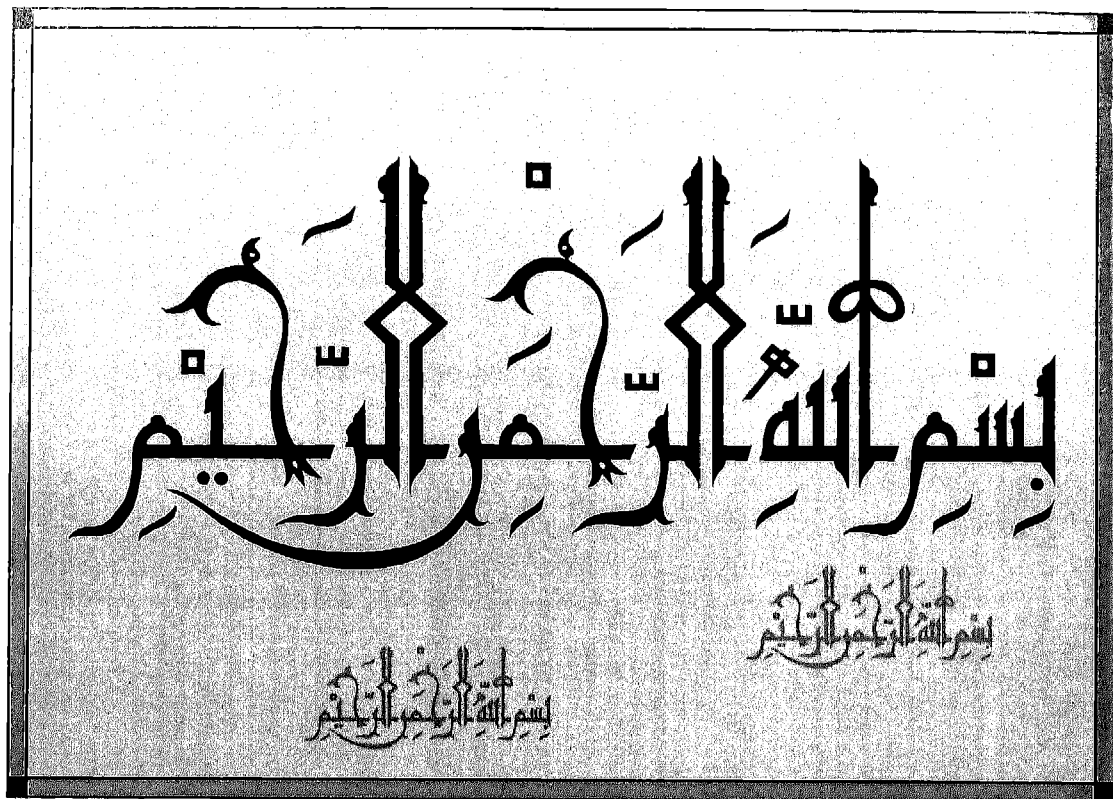 بِسْمِ اللَّهِ الرَّحْمَنِ الرَّحِيْمِ
بِسْمِ اللَّهِ الرَّحْمَنِ الرَّحِيْمِ
بِسْمِ اللَّهِ الرَّحْمَنِ الرَّحِيْمِ